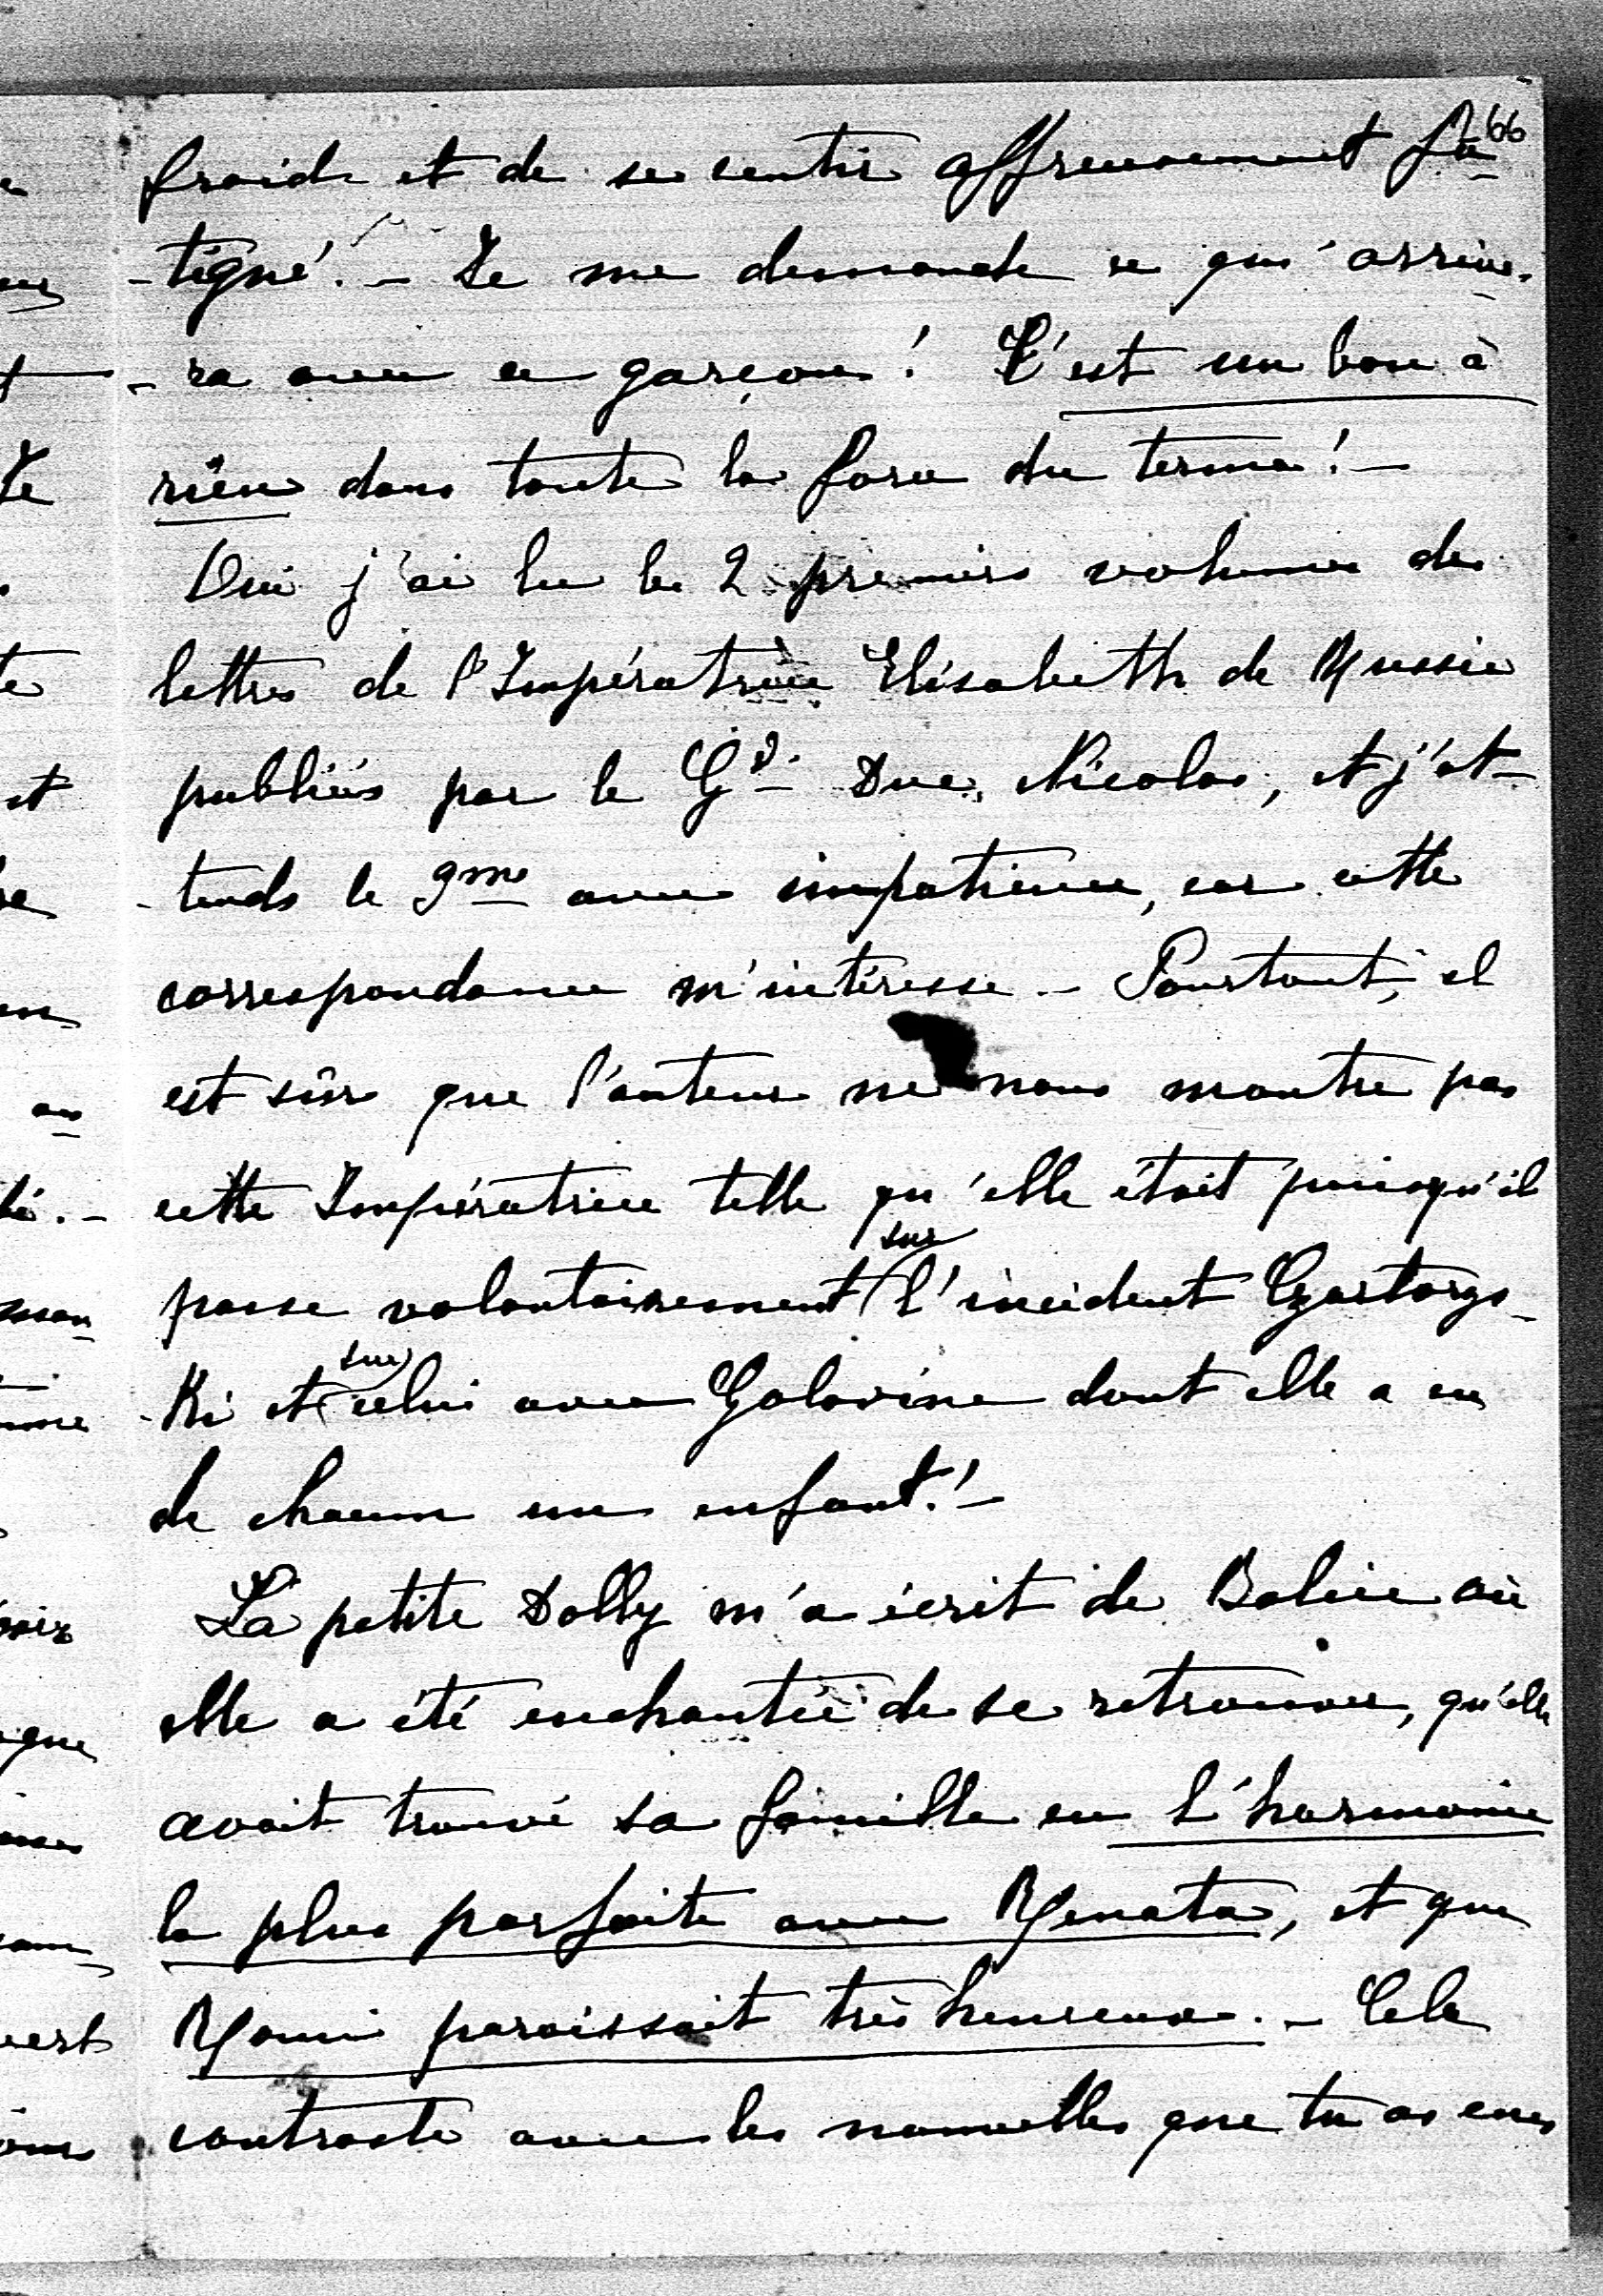 66
froide et de se sentir affreusement fa-
-tigué. - Je me demande ce qui arrive-
-ra avec ce garçon! C'est un bon à
rien dans toute la force du terme! -
Oui j'ai lu les 2 premiers volumes des
lettres de l'Impératrice Elisabeth de Russie
publiées par le Gd. Duc Nicolas, et j'at-
-tends le 3me avec impatience, car cette
correspondance m'intéresse - Pourtant, il
est sûr que l'auteur ne nous montre pas
cette Impératrice telle qu'elle était puisqu'il
passe volontairement sur l'incident Czartorys-
-ki et sur celui avec Golovine dont elle a eu
de chacun un enfant! -
La petite Dolly m'a écrit de Balice où
elle a été enchantée de se retrouver, qu'elle
avait trouvé sa famille en l'harmonie
la plus parfaite avec Renata, et que
Roni paraissait très heureux. - Cela
contraste avec les nouvelles que tu as eues